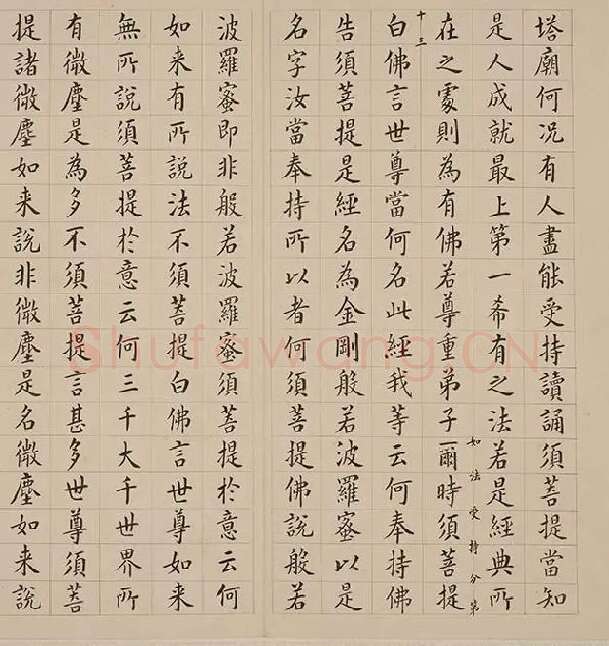 塔廟何况有人盡能受持讀誦須菩提當知
是人成就最上第一希有之法若是經典所
在之處則為有佛若尊重弟子爾時須菩提
如法受持分第
十三
白佛言世尊當何名此經我等云何奉持佛
告須菩提是經名為金剛般若波羅蜜以是
名字汝當奉持所以者何須菩提佛說般若
波羅蜜即非般若波羅蜜須菩提於意云何
如来有所說法不須菩提白佛言世尊如来
無所說須菩提於意云何三千大千世界所
有微塵是為多不須菩提言甚多世尊須菩
提諸微塵如来說非微塵是名微塵如来說
Shufawang.CN